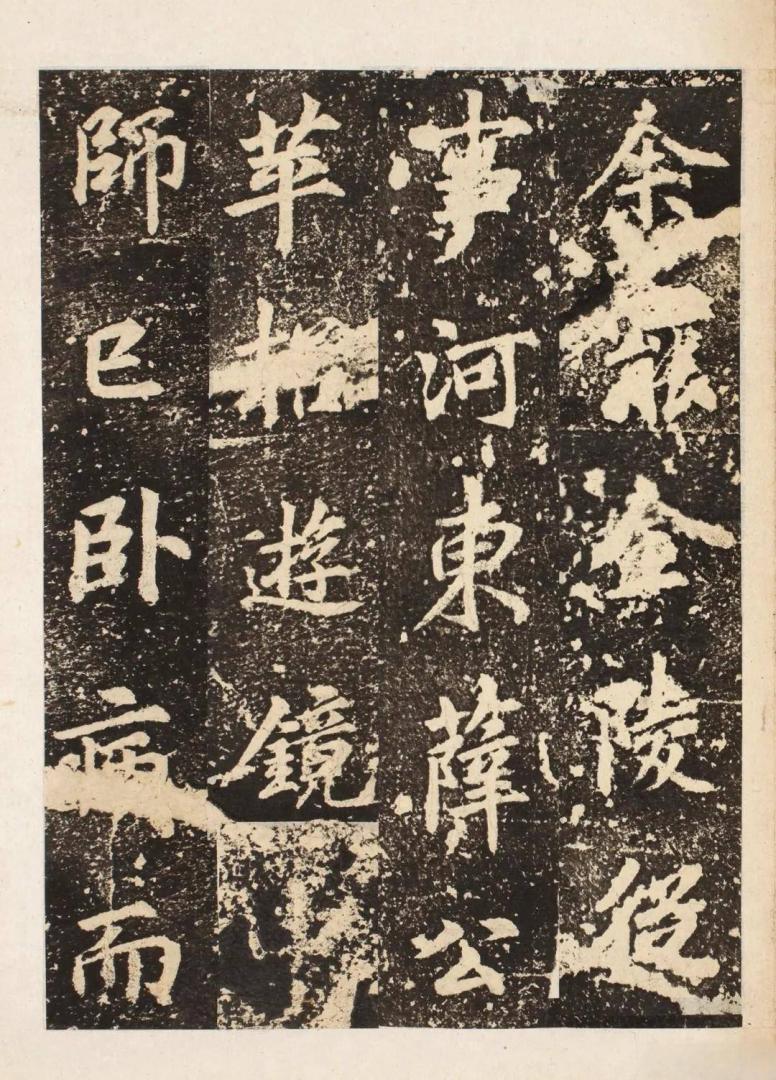 余罷金陵從
事河東薛公
苹招遊鏡
師已卧病而